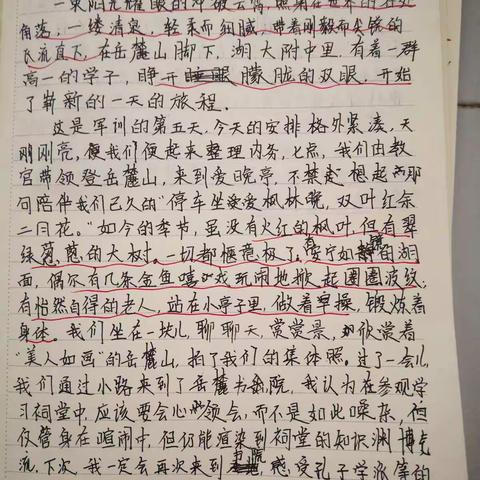 一束阳光耀眼的冲破云霄，照射在世界的各处
角落，一缕清泉，轻柔而细腻，带着刚毅而尖锐的
长流直下，在岳麓山脚下，湖大附中里，有着一群
高一的学子，睁开朦胧的双眼，开始
了崭新的一天的旅程．
这是军训的第五天，今天的安排格外紧凑，天
刚刚亮，我们便起来整理内务，七点，我们由教
官带领登岳麓山，来到爱晚亭，不禁想起那
句陪伴我们已久的"停车坐爱枫林晚，双叶红余
二月花。"如今的季节，虽没有火红的枫叶，但有翠
绿葱葱的大树．一切都惬意极了，安宁如镜的湖
面，偶尔有几条金鱼嘻戏玩闹地掀起圈圈波纹，
有怡然自得的老人，站在小亭子里，做着早操，锻炼着
身体．我们坐在一块儿，聊聊天，赏赏景，欣赏着
"美人如画"的岳麓山，拍了我们的集体照．过了一会儿
我们通过小路来到了岳麓书院，我认为在参观学
习祠堂中，应该要会心领会，而不是如此嘈杂，但
仅管身在喧闹中，但仍能渲染到祠堂的知识渊博
流．下次，我一定会再次来到书院感受孔子学派等的